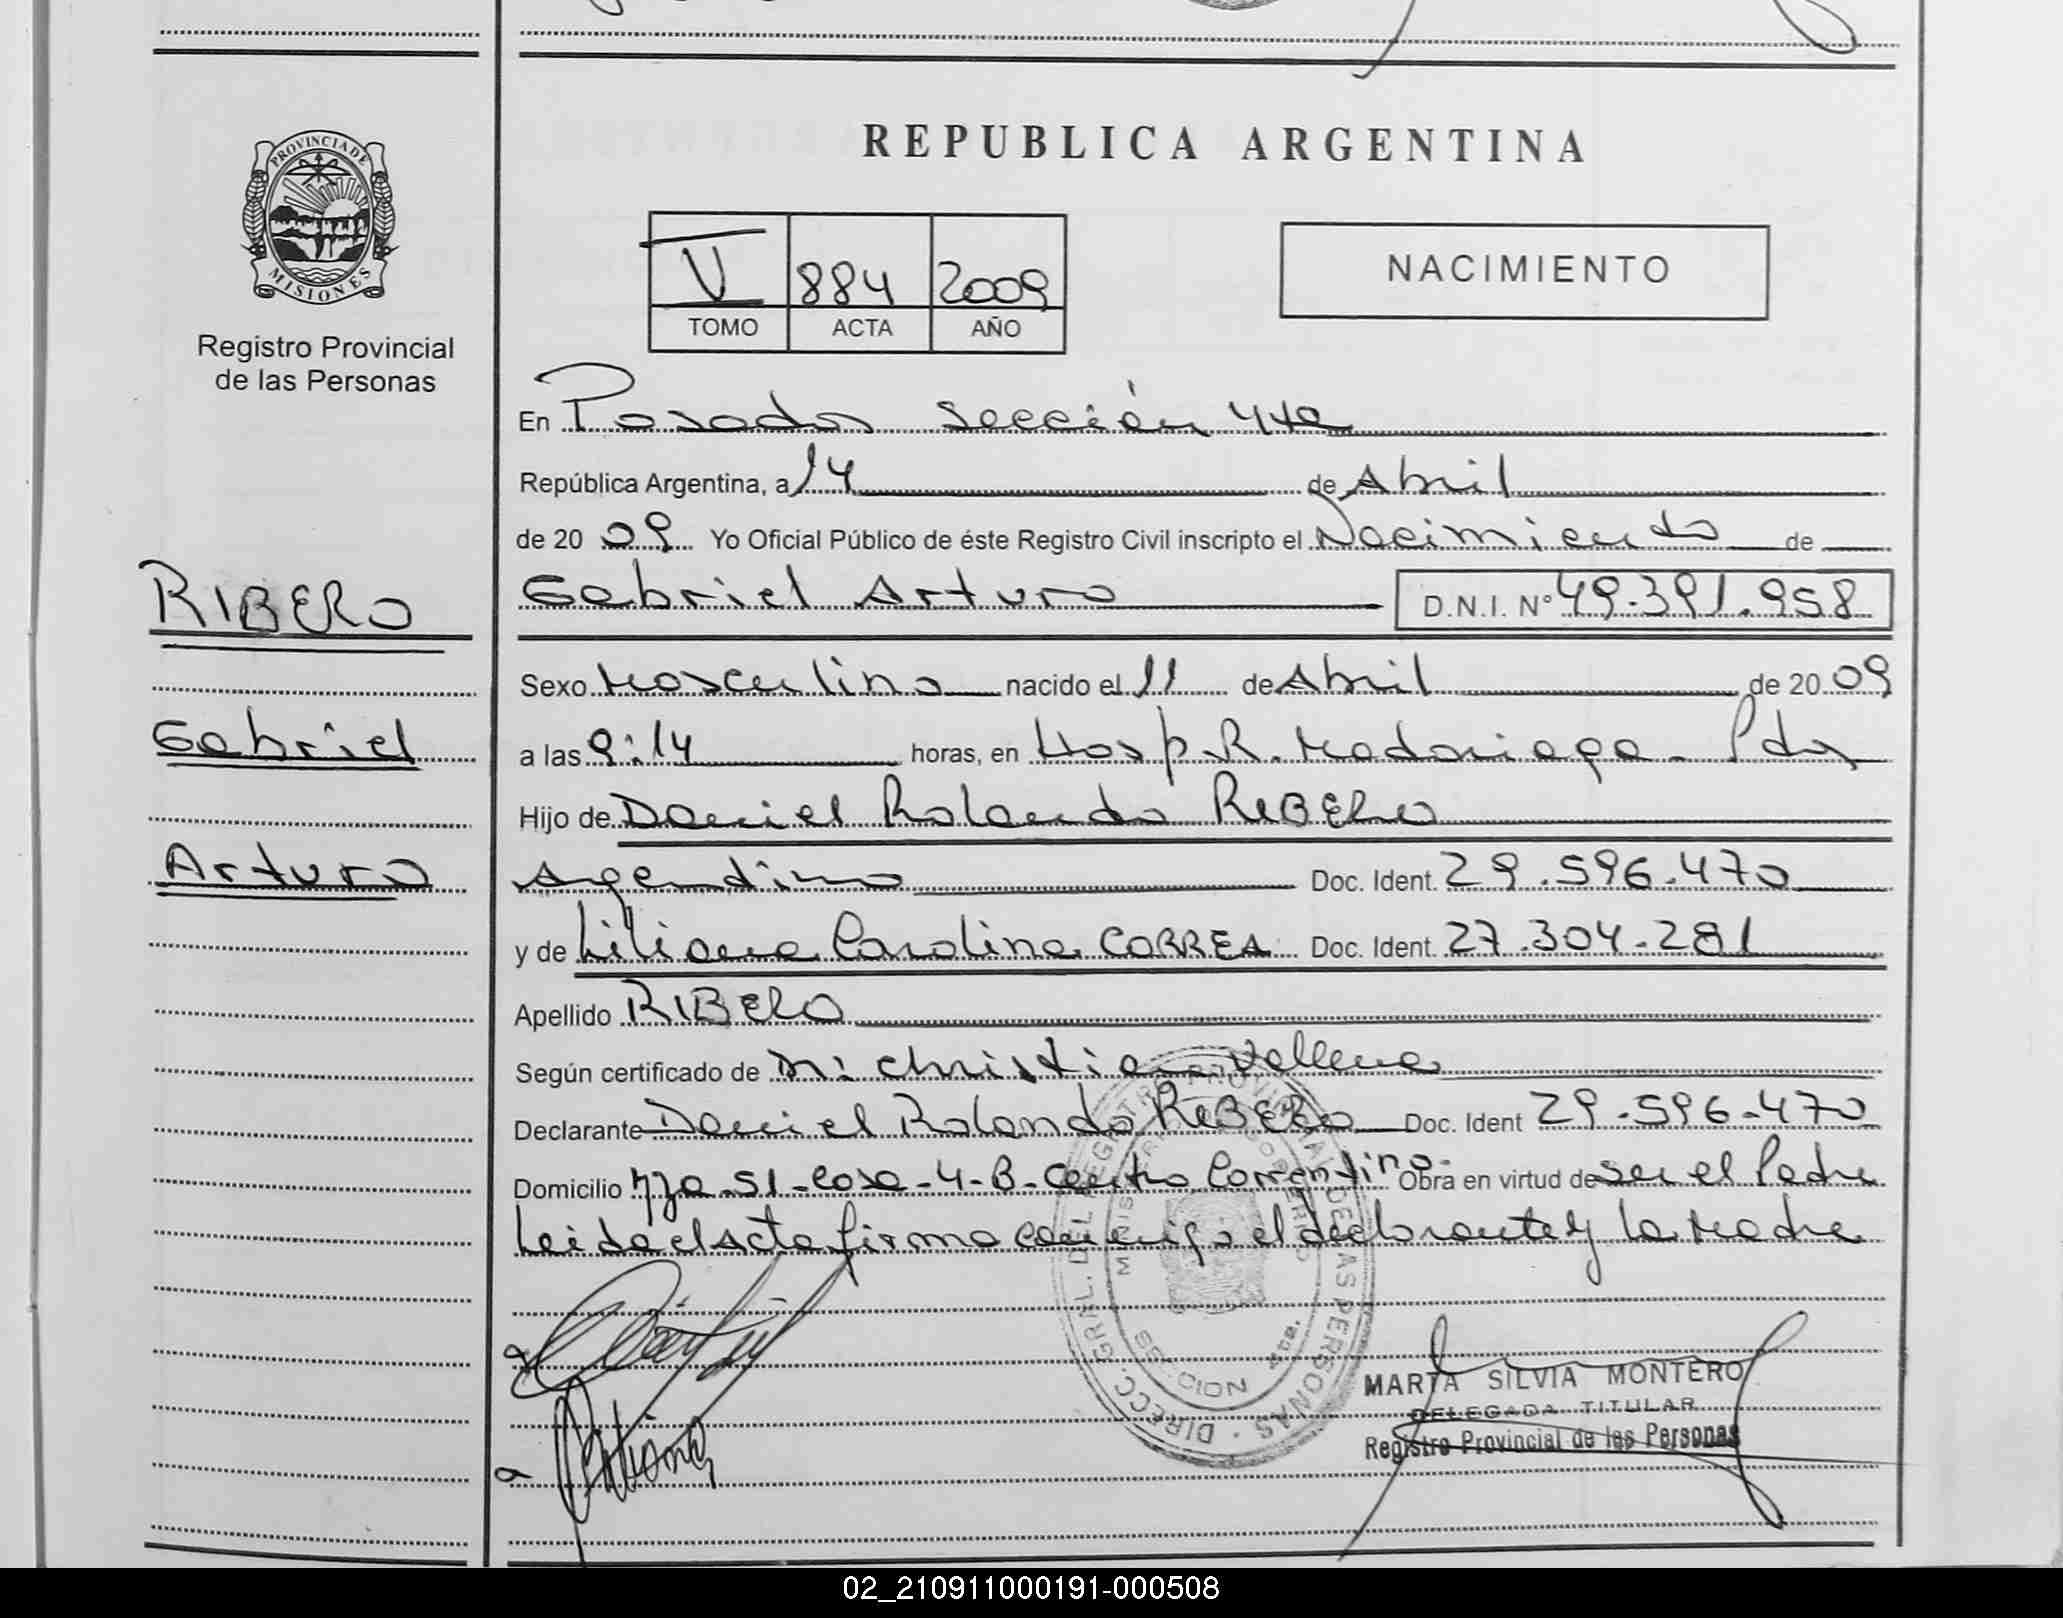 REPUBLICA ARGENTINA
PROVINCIA DE MISIONES
Registro Provincial
de las Personas
V 884 2009
TOMO ACTA AÑO
NACIMIENTO
En Posadas Sección 4ta
República Argentina, a 14 de Abril
de 20 09 Yo Oficial Público de éste Registro Civil inscripto el Nacimiento de
RIBERO
Gabriel
Arturo
Gabriel Arturo D.N.I. N° 49.391.958
Sexo Masculino nacido el 11 de Abril de 20 09
a las 9:14 horas, en Hosp. R. Madariaga - Pdas
Hijo de Daniel Rolando RIBERO
Argentino Doc. Ident. 29.596.470
y de Liliana Carolina CORREA Doc. Ident. 27.304.281
Apellido RIBERO
Según certificado de Dr: Christian
Declarante Daniel Rolando RIBERO Doc. Ident 29.596.470
Domicilio Mza. 51 - Casa - 4 - B - Centro Correntino. Obra en virtud de ser el Padre
Leida el Acta firma conmigo el declarante y la Madre
DIRECC. GRAL. DEL REGISTRO PROVINCIAL DE LAS PERSONAS
MARTA SILVIA MONTERO
DELEGADA TITULAR
Registro Provincial de las Personas
02_210911000191-000508